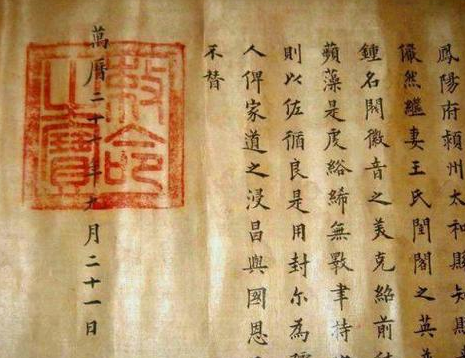 鳳陽府潁州太和縣知縣
儼然繼妻王氏閨閣之英
鍾名閥徽音之美克紹前
蘋藻是虔綌絺無斁聿持
則以佐循良是用封尔為孺
人俾家道之浸昌與國恩
不替
萬曆二十一年九月二十一日
敕命之寶